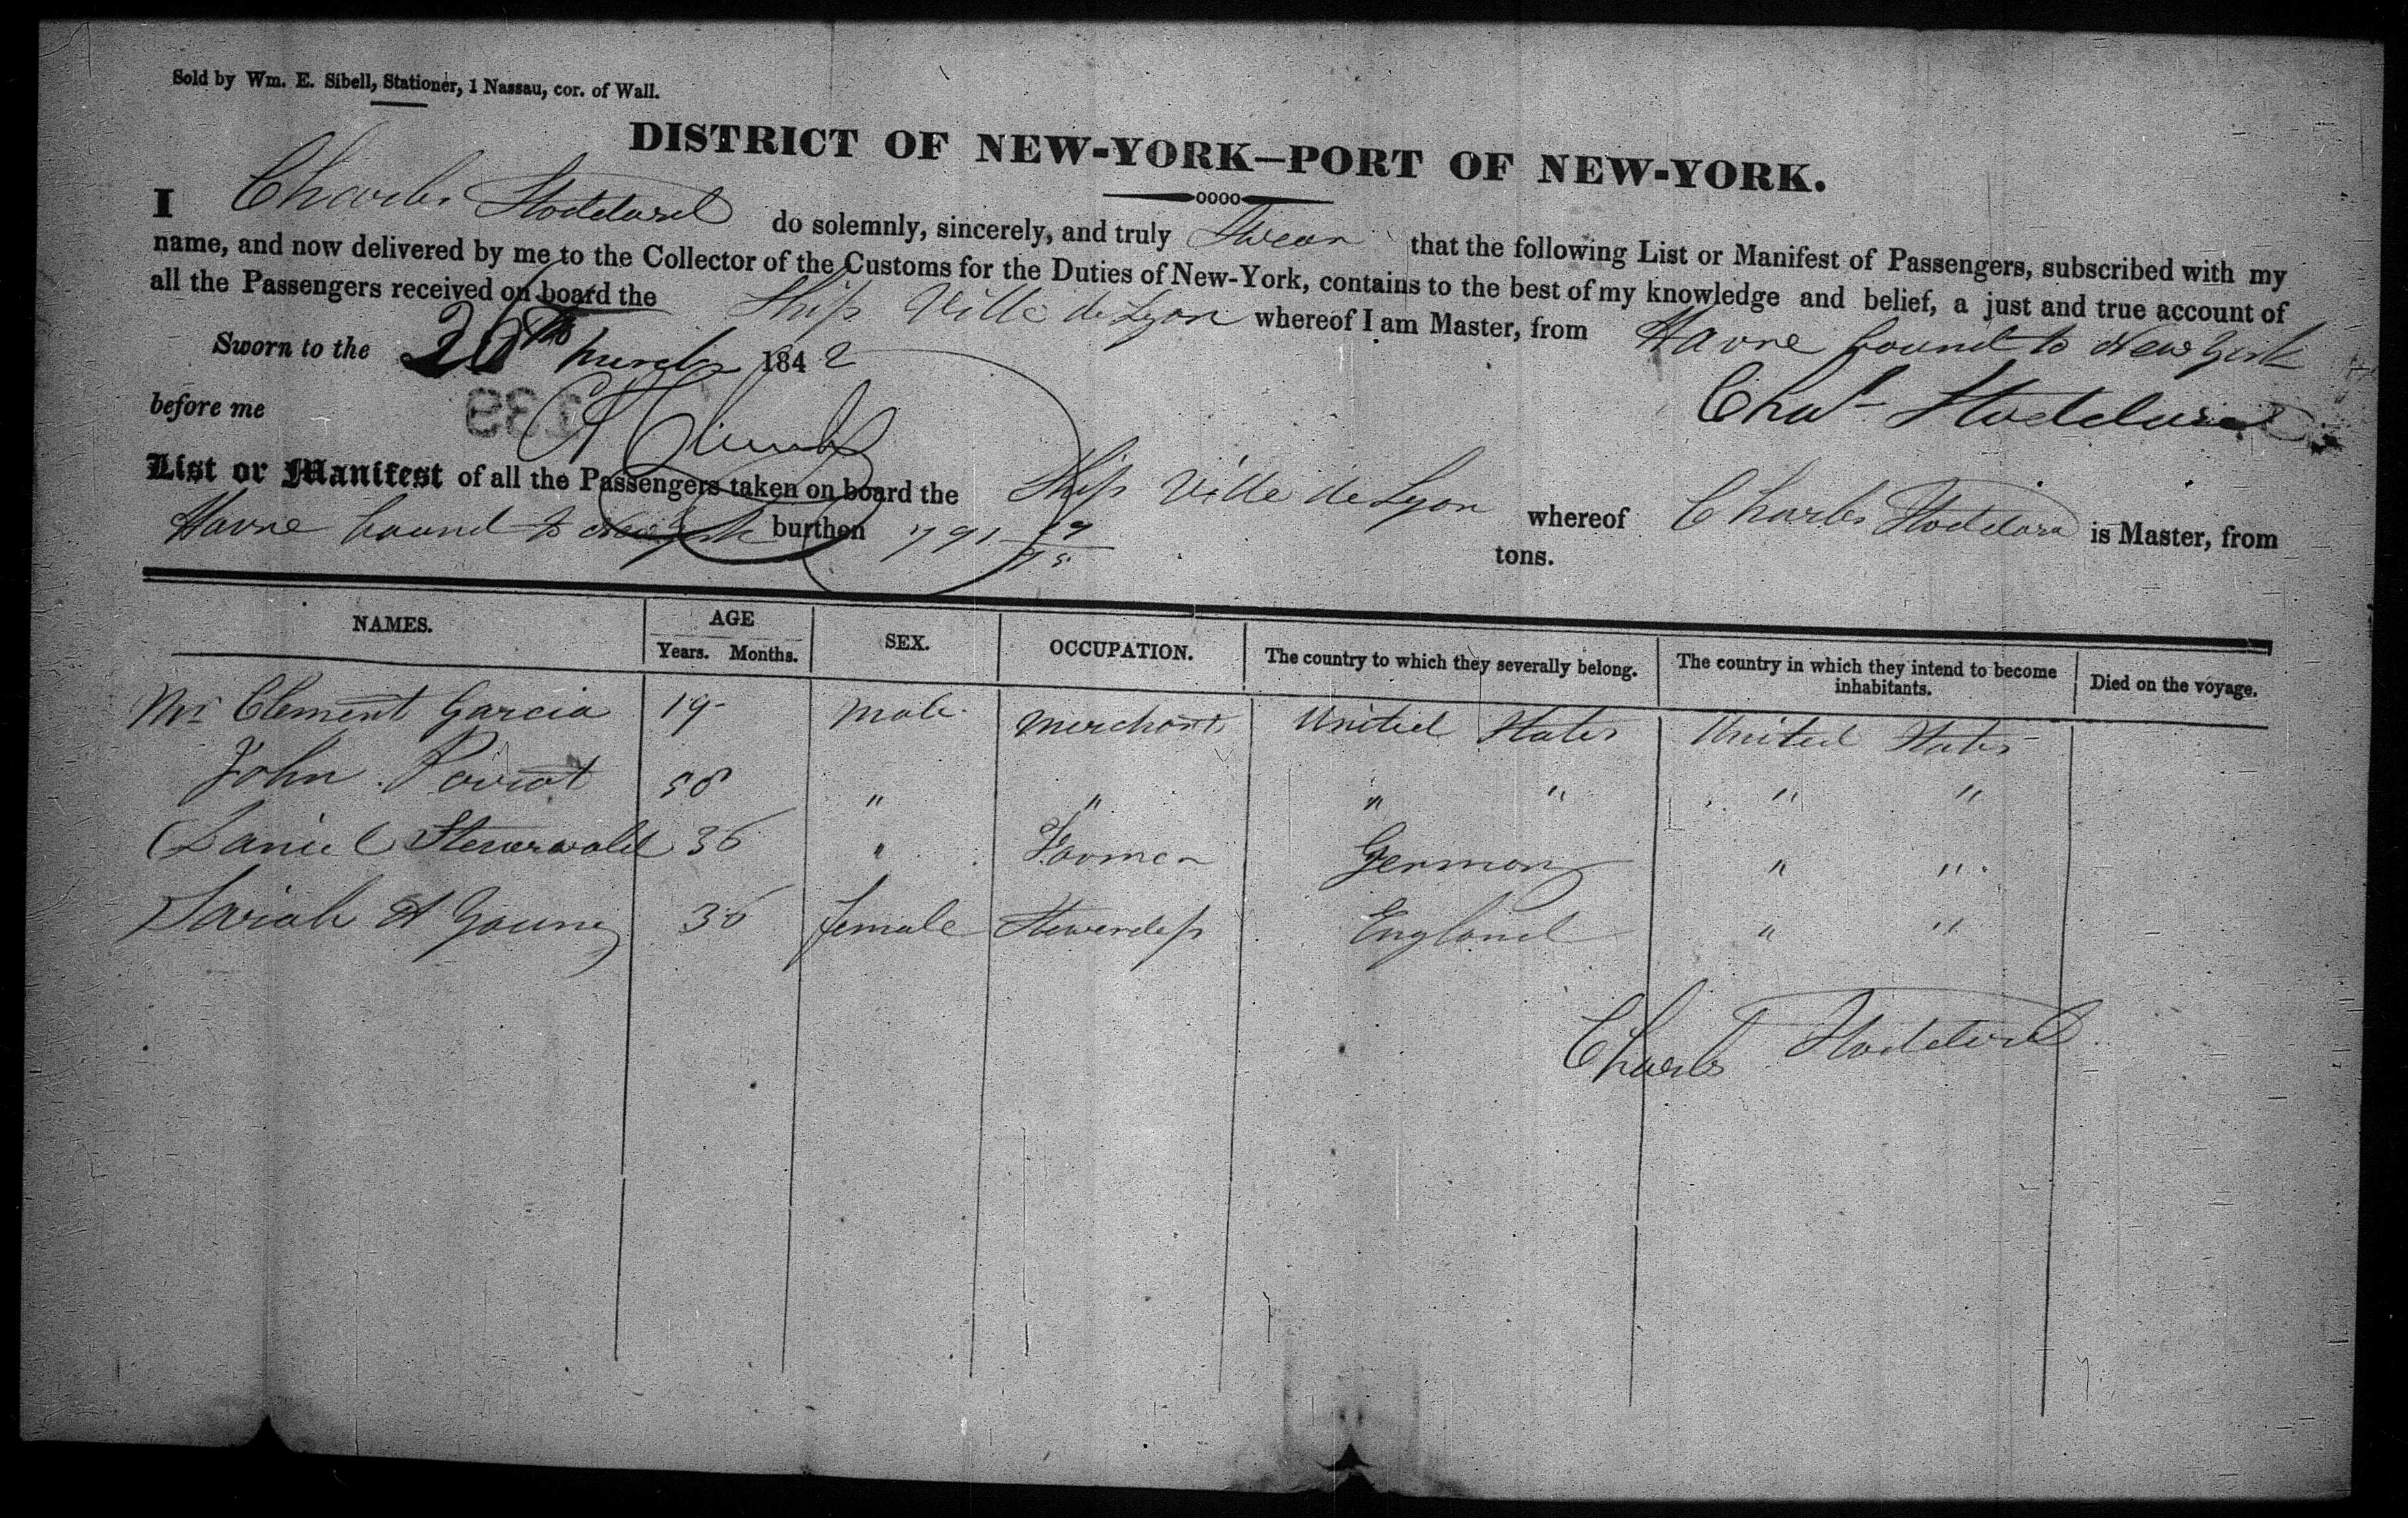 Sold by Wm. E. Sibell, Stationer, 1 Nassau, cor. of Wall.
DISTRICT OF NEW-YORK—PORT OF NEW-YORK.
I Charles Stoddard do solemnly, sincerely, and truly Swear that the following List or Manifest of Passengers, subscribed with my
name, and now delivered by me to the Collector of the Customs for the Duties of New-York, contains to the best of my knowledge and belief, a just and true account of
all the Passengers received on board the Ship Ville de Lyon whereof I am Master, from Havre bound to New York
Sworn to the 26th March 1842
Chas Stoddard
before me
List or Manifest of all the Passengers taken on board the Ship Ville de Lyon whereof Charles Stoddard is Master, from
Havre bound to New York burthen 791 tons.
NAMES. AGE SEX. OCCUPATION. The country to which they severally belong. The country in which they intend to become inhabitants. Died on the voyage.
Years. Months.
Mr Clement Garcia 19 Male Merchant United States United States
John 58 " " " " " "
Daniel Steuerwald 36 " Farmer Germany " "
Sariah A Young 36 female Stewardess England " "
Charles Stoddard